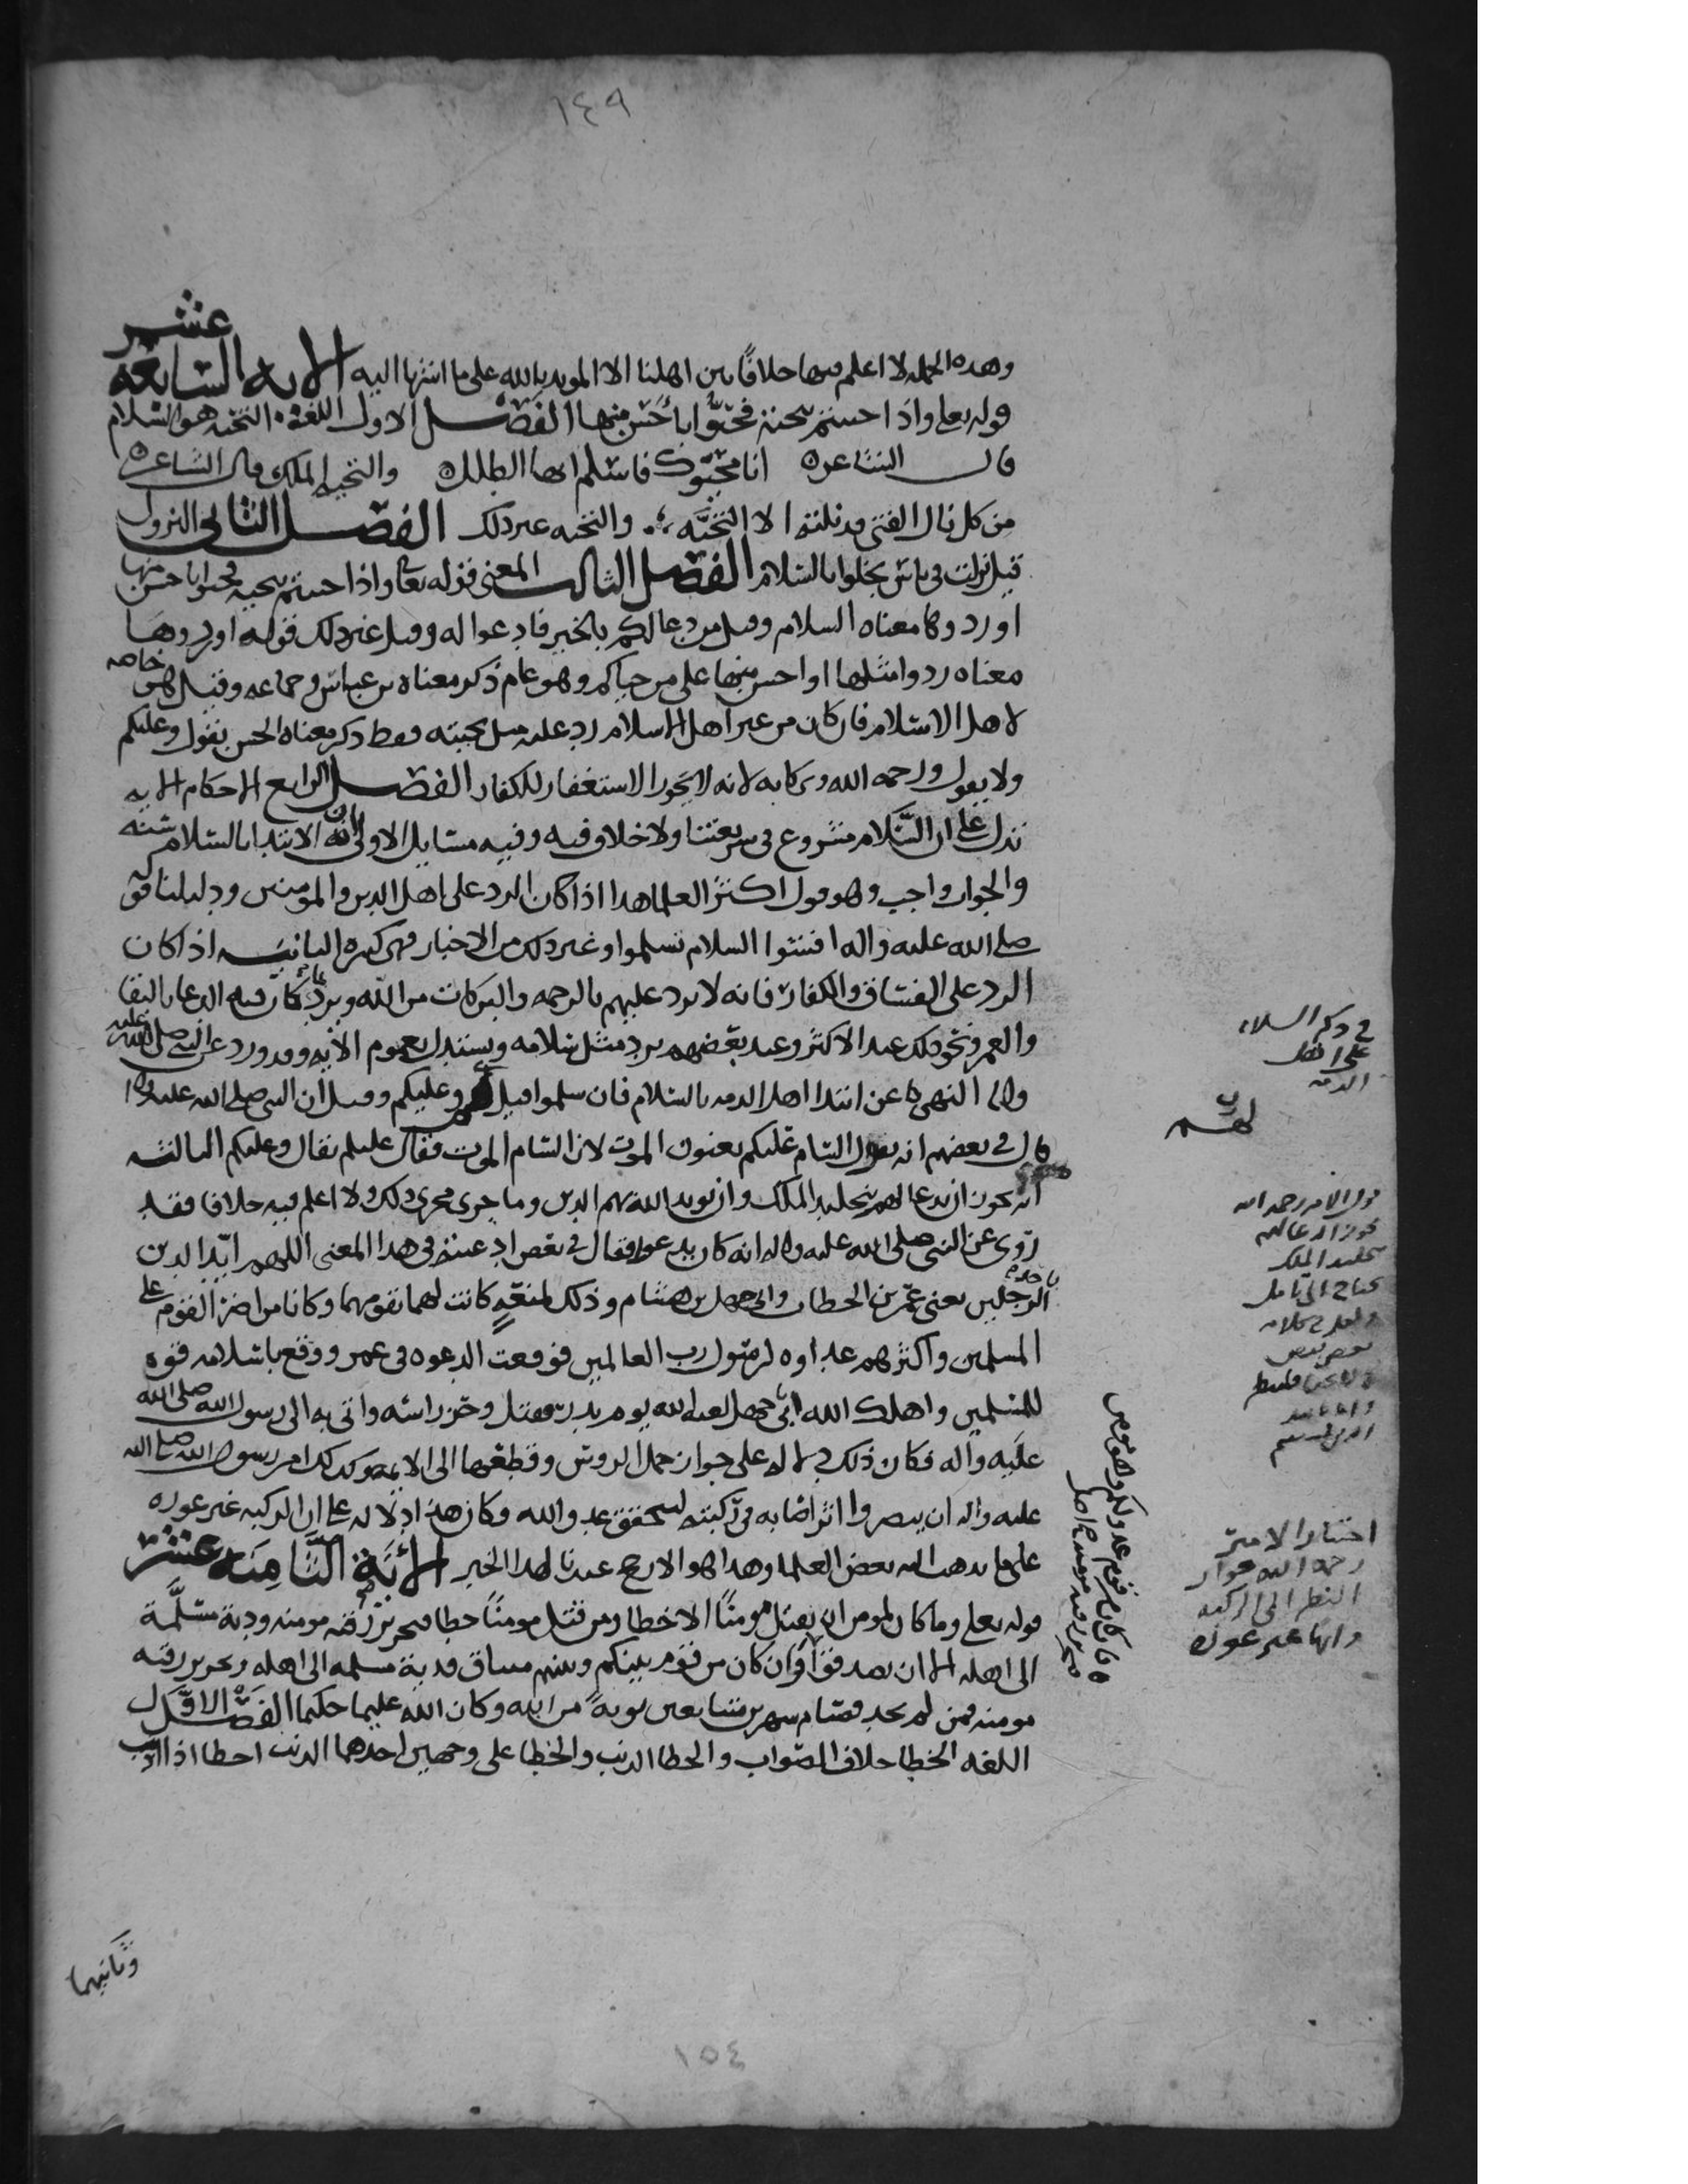 ١٤٩
وهذه الجملة لا اعلم فيها خلافًا بين اهلنا الا المويد بالله على ما اشرنا اليه الايه السابعة عشر
قوله تعلى واذا حييتم بتحية فحيّوا بأحسن منها الفصل الاول اللغة التحية هو السلام
قال الشاعر انا محيّوك فاسلم ايها الطلل والتحية الملك قال الشاعر
من كل نال الفتى قد نلته الا التحيّه والتحيه غير ذلك الفصل الثاني النزول
قيل نزلت في ناس بخلوا بالسلام الفصل الثالث المعنى قوله تعالى واذا حييتم بتحية فحيوا باحسن منها
او ردوها معناه السلام وقيل من دعا لكم بالخير فادعوا له وقيل غير ذلك قوله او ردوها
معناه ردوا مثلها او احسن منها على من حياكم وهو عام ذكر معناه بن عباس وجماعه وقيل هي خاصه
لاهل الاسلام فان كان من غير اهل الاسلام رد عليه مثل تحيته فقط ذكر معناه الحسن يقول وعليكم
ولا يقول ورحمه الله وبركاته لانه لا يجوز الاستغفار للكفار الفصل الرابع الاحكام الايه
تدل على ان السّلام مشروع في شريعتنا ولا خلاف فيه وفيه مسايل الاولى ان الابتدا بالسلام سنه
والجواب واجب وهو قول اكثر العلما هذا اذا كان الرد على اهل الدين والمومنين ودليلنا قوله
صلى الله عليه واله افشوا السلام تسلموا وغير ذلك من الاخبار فهي كثيره الثانيه اذا كان
الرد على الفساق والكفار فانه لا يرد عليهم بالرحمه والبركات من الله ويرد فيه الدعا بالبقا
والعمر ونحو ذلك عند الاكثر وعند بعضهم يرد مثل سلامه ويستدل بعموم الايه وقد ورد عن النبي صلى الله عليه
واله النهي عن ابتدا اهل الذمه بالسلام فان سلموا قيل وعليكم وقيل ان النبي صلى الله عليه واله
قال في بعضهم انه يقول السام عليكم يعنون الموت لان السام الموت فقال عليكم يقال وعليكم الثالثه
انه يجوز ان يدعا لهم بتخليد الملك وان يويد الله بهم الدين وما جرى مجرى ذلك ولا اعلم فيه خلافا فقد
روى عن النبي صلى الله عليه واله انه كان يدعوا فقال في بعض ادعيته في هذا المعنى اللهم ايّد الدين
باحد الرجلين يعني عمر بن الخطاب وابي جهل بن هشام وذلك لمنعّةٍ كانت لهما بقومهما وكانا من اضر القوم على
المسلمين واكثرهم عداوه لرسول رب العالمين فوقعت الدعوه في عمر ووقع باسلامه قوه
للمسلمين واهلك الله ابي جهل لعنه الله يوم بدر فقتل وحز راسه واتى به الى رسول الله صلى الله
عليه واله فكان ذلك دلاله على جواز حمل الروس وقطعها الى الايمه وكذلك امر رسول الله صلى الله
عليه واله ان يبصروا اثرا اصابه في ركبته ليتحقق عدو الله وكان هذا دلاله على ان الركبه غير عوره
على ما يذهب اليه بعض العلما وهذا هو الارجح عندنا لهذا الخبر الآية الثامنه عشر
قوله تعلى وما كان لمومن ان يقتل مومنًا الا خطا ومن قتل مومنًا خطا فتحرير رقبه مومنه ودية مسلّمة
الى اهله الا ان يصدقوا وان كان من قوم بينكم وبينهم ميثاق فدية مسلمه الى اهله وتحرير رقبه
مومنه فمن لم يجد فصيام شهرين متتابعين توبةً من الله وكان الله عليما حكيما الفصل الاوّل
اللغه الخطا خلاف الصواب والخطا الذنب والخطا على وجهين احدهما الذنب اخطا اذا اذنب
وثانيهما
في ذكر السلام
على اهل
الذمه
قول الامير رحمه الله
يجوز الدعا لهم
بتخليد الملك
يحتاج الى تامل
اختيار الامير
رحمه الله جواز
النظر الى الركبه
وانها غير عوره
فان كان من قوم عدو لكم وهو مومن
فتحرير رقبه مومنه صح اصل
١٥٤